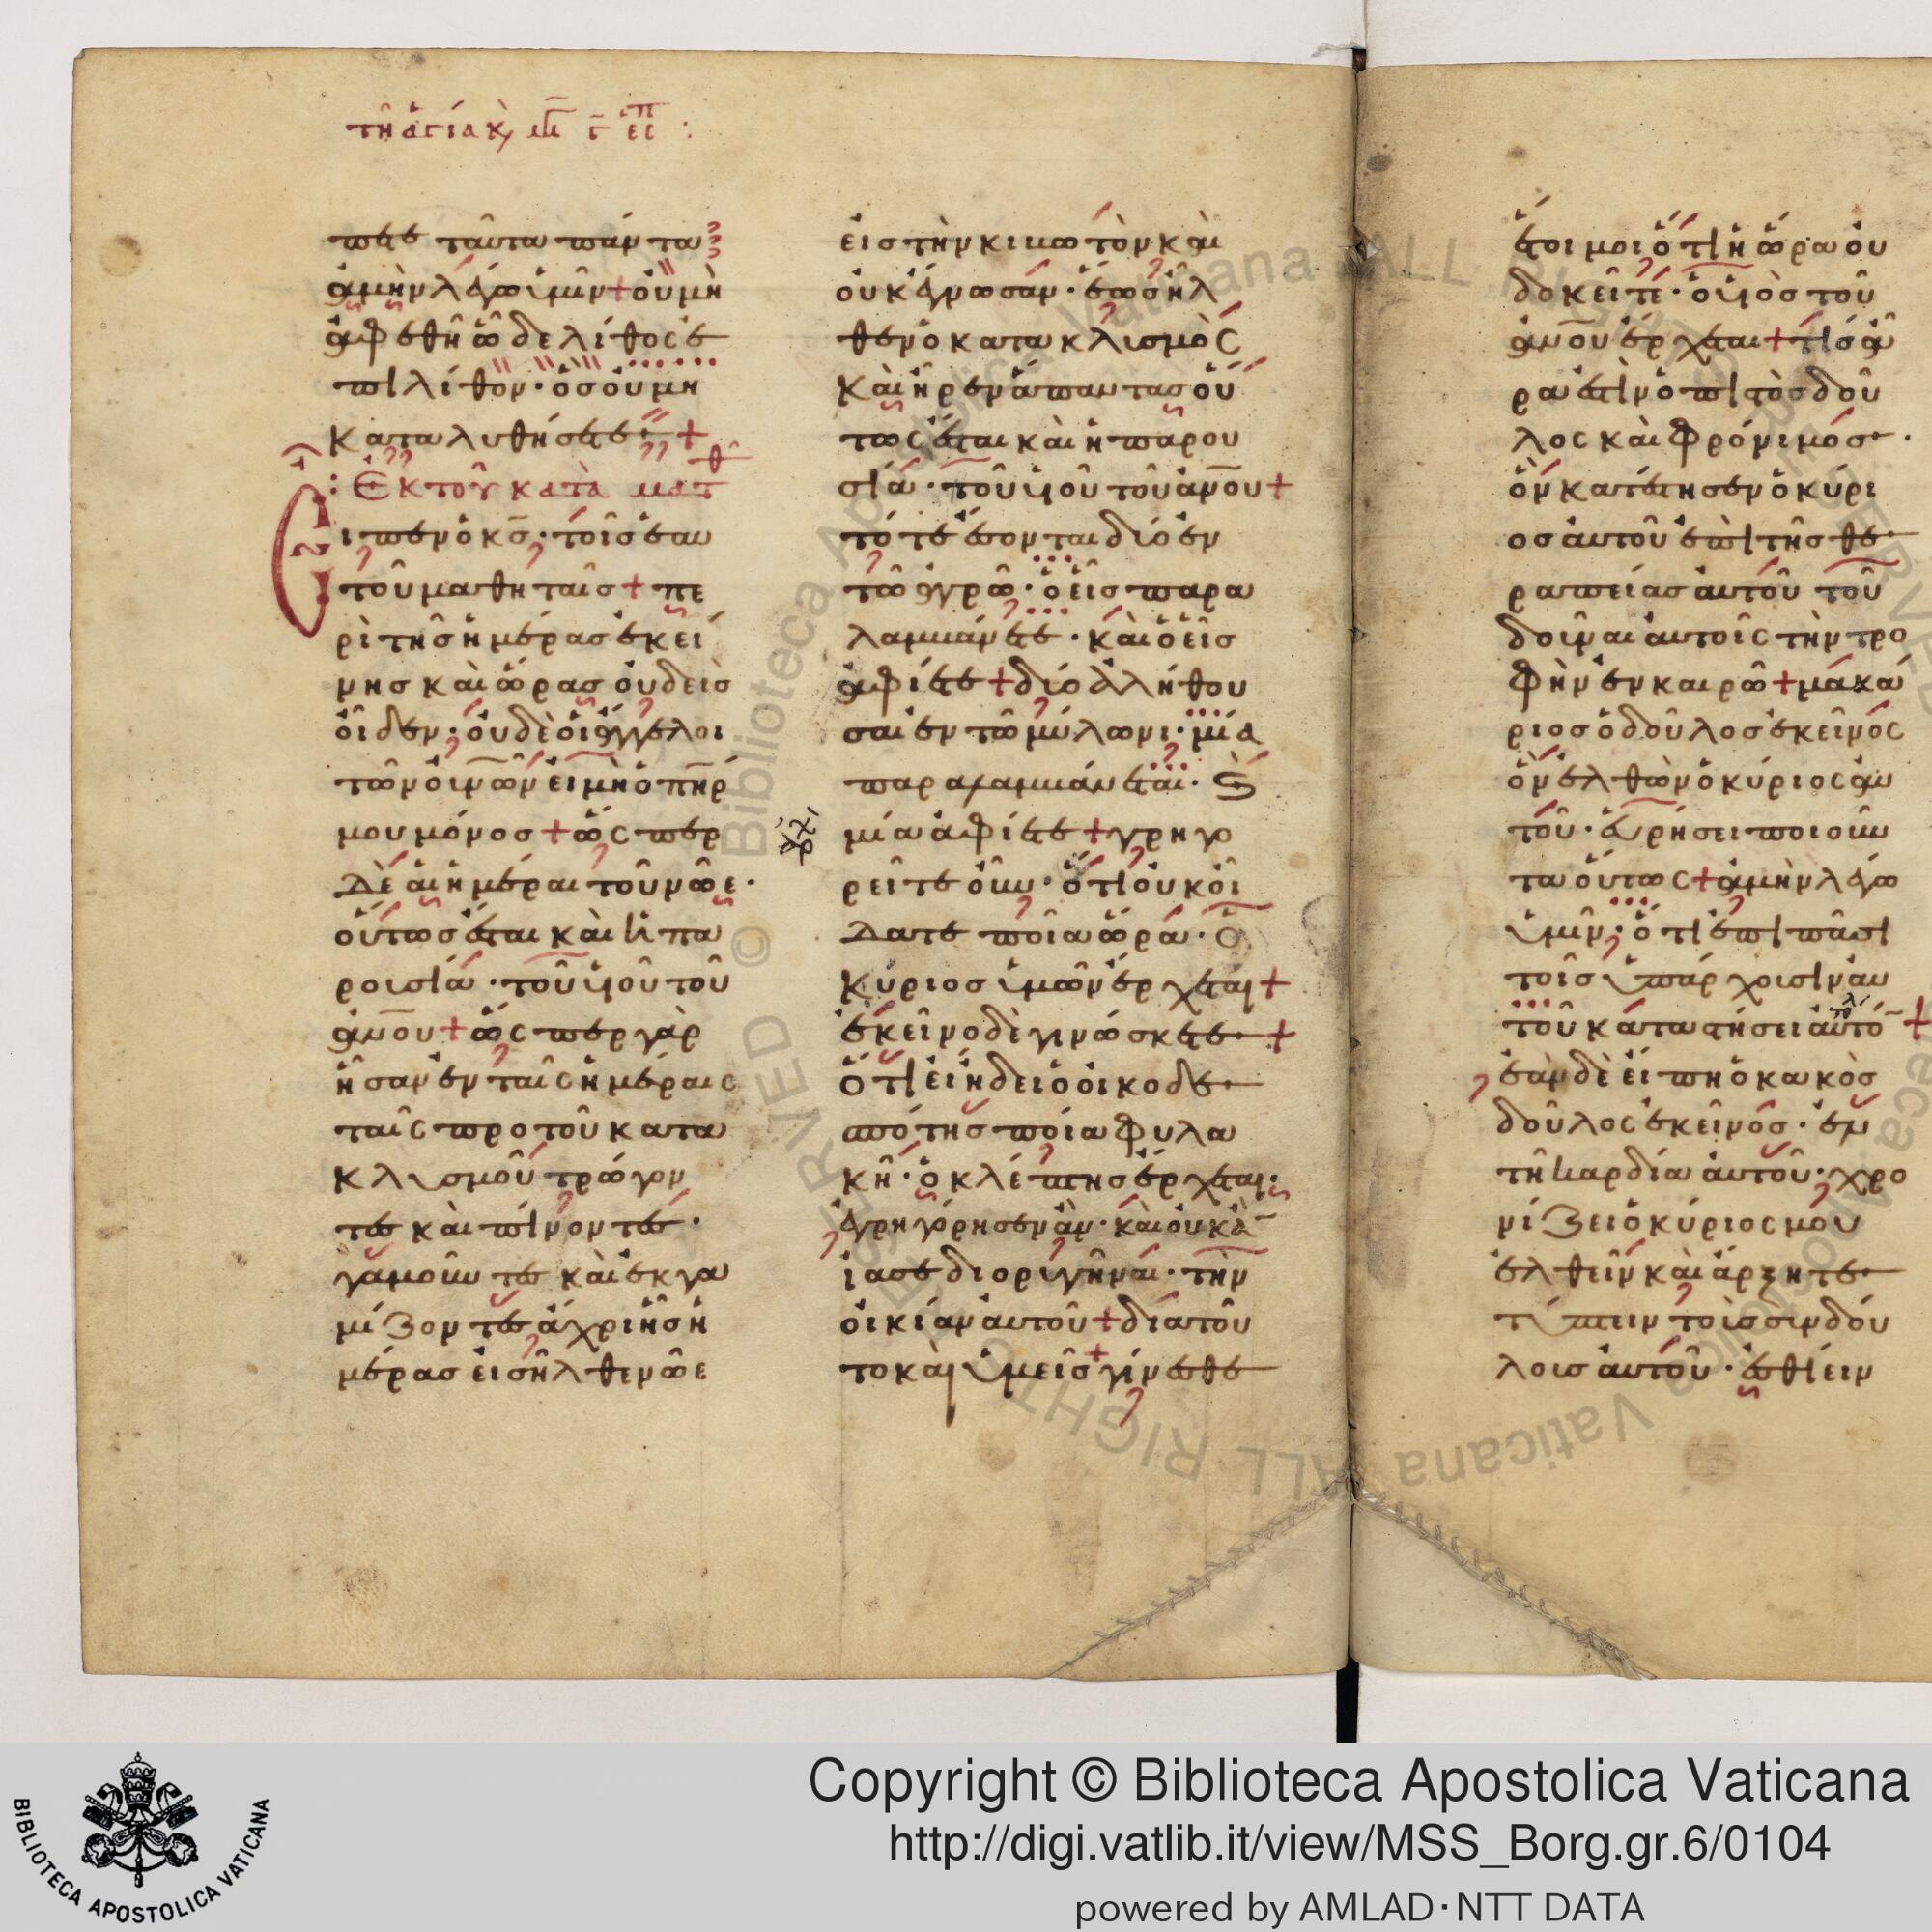 τῆ ἁγία κ, μ γ ἑσπ :
πετε ταῦτα πάντα
ἀμὴν λέγω ὑμῖν + οὐ μὴ
ἀφεθῆ ὧδε λίθος ἐ
πὶ λίθον · ὃς οὐ μη
καταλυθήσεται +
: Ἐκ τοῦ κατὰ ματθ
ιπεν ὁ κς · τοῖς ἑαυ
τοῦ μαθηταῖς + πε
ρὶ τῆς ἡμέρας ἐκεί
νης καὶ ὥρας οὐδεὶς
οἶδεν · οὐδὲ οἱ ἄγγελοι
τῶν οὐνῶν εἰ μὴ ὁ πηρ
μου μόνος + ὥς περ
δὲ αἱ ἡμέραι τοῦ νῶε ·
οὕτως ἔσται καὶ ἡ πα
ρουσία · τοῦ υἱοῦ τοῦ
ἀνου + ὥς περ γὰρ
ἦσαν ἐν ταῖς ἡμέραις
ταῖς προ τοῦ κατα
κλυσμοῦ τρώγον
τες καὶ πίνοντες ·
γαμοῦντες καὶ ἐκγα
μίζοντες ἄχρι ἧς ἡ
μέρας εἰσῆλθε νῶε
εἰς τὴν κιβωτὸν καὶ
οὐκ ἔγνωσαν · ἕως ἦλ
θεν ὁ κατακλισμὸς
καὶ ἦρεν ἅπαντας οὕ
τως ἔσται καὶ ἡ παρου
σία · τοῦ υἱοῦ τοῦ ἀνου +
τότε ἔσονται δύο ἐν
τῶ ἀγρῶ · ὁ εἷς παρα
λαμβάνεται · καὶ ὁ εἷς
ἀφίεται + δύο ἀλήθου
σαι ἐν τῶ μύλωνι · μία
παραλαμβάνεται · Ϛ
μία ἀφίεται + γρηγο
ρεῖτε οὖν · ὅτι οὐκ οἴ
δατε ποῖα ὥρα · ὁ
κύριος ὑμῶν ἔρχεται +
ἐκεῖνο δὲ γινώσκετε +
ὅτι εἰ ἤδει ὁ οἰκοδε
σπότης ποία φυλα
κῆ · ὁ κλέπτης ἔρχεται ·
ἐγρηγόρησεν ἂν · καὶ οὐκ ἂ
ίασε διοριγῆναι · τὴν
οἰκίαν αὐτοῦ + διατοῦ
το καὶ ὑμεῖς γίνεσθε
ἕτοιμοι ὅτι ἧ ὥρα οὐ
δοκεῖτε · ὁ υἱὸς τοῦ
ἀνου ἔρχεται + τίς ἄ
ρα ἐστὶν ὁ πιστὸς δοῦ
λος καὶ φρόνιμος ·
ὃν κατέστησεν ὁ κύρι
ος αὐτοῦ ἐπὶ τῆς θε
ραπείας αὐτοῦ τοῦ
δοῦναι αὐτοῖς τὴν τρο
φὴν ἐν καιρῶ + μακά
ριος ὁ δοῦλος ἐκεῖνος
ὃν ἐλθὼν ὁ κύριος αὐ
τοῦ · εὑρήσει ποιοῦν
τα οὕτως + ἀμὴν λέγω
ὑμῖν · ὅτι ἐπὶ πᾶσι
τοῖς ὑπάρχουσιν αὐ
τοῦ καταστήσει αὐτό +
ἐὰν δὲ εἴπη ὁ κακὸς
δοῦλος ἐκεῖνος · ἐν
τῆ καρδία αὐτοῦ · χρο
νίζει ὁ κύριος μου
ἐλθεῖν καὶ ἄρξητε
τύπτειν τοὺς συνδού
λοις αὐτοῦ · ἐσθίειν
Copyright © Biblioteca Apostolica Vaticana
http://digi.vatlib.it/view/MSS_Borg.gr.6/0104
powered by AMLAD·NTT DATA
BIBLIOTECA APOSTOLICA VATICANA